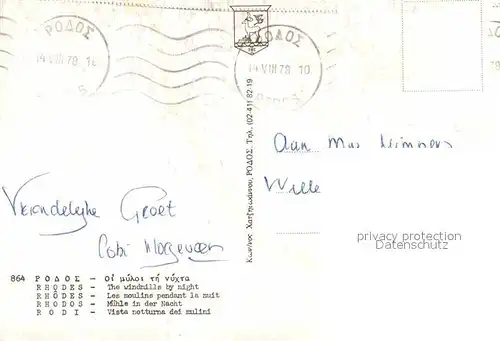 ΡΟΔΟΣ
14 VIII 78 1
5
ΡΟΔΟΣ
14 VIII 78 10
Aan
Wille
privacy protection
Datenschutz
Vriendelijke Groet
Cobi
864 ΡΟΔΟΣ - Οἱ μῦλοι τή νύχτα
RHODES - The windmills by night
RHÔDES - Les moulins pendant la nuit
RHODOS - Mühle in der Nacht
RODI - Vista notturna dei mulini
Κων/νος Χατζηιωάννου, ΡΟΔΟΣ, Τηλ. (02-41) 82-19